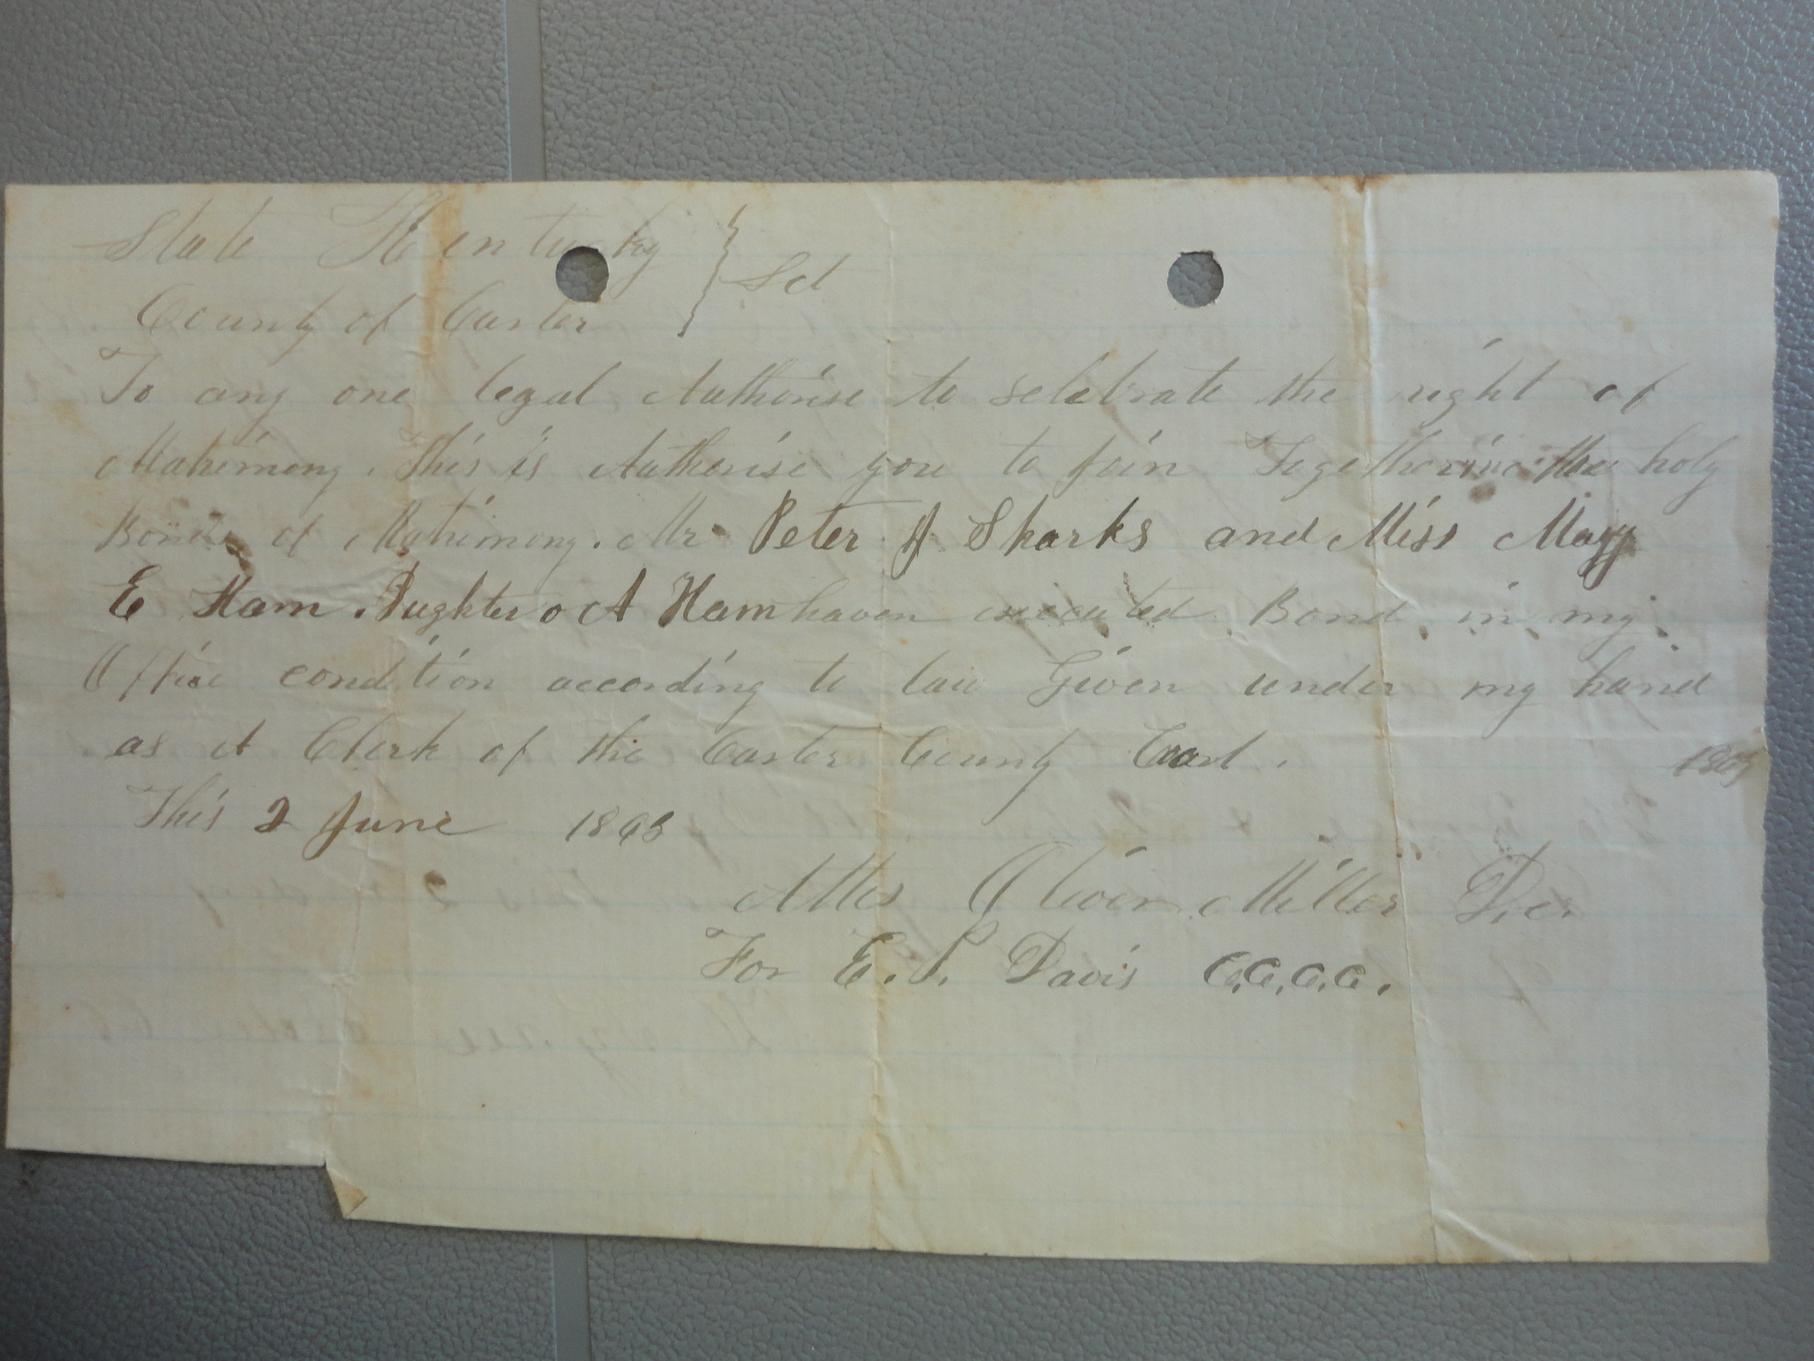 State Kentucky } Sct
County of Carter
To any one legal Authorise to selebrate the right of
Matrimony. This is Authorise you to join Together in the holy
Bonds of Matrimony. Mr Peter J Sparks and Miss Mary
E Ham. Dughter o A Ham haven executed Bond in my
Office condition according to law Given under my hand
as A Clerk of the Carter County Coart.
This 2 June 1863
Attes Oliver Miller D.c.
For E. P. Davis C.C.C.C.